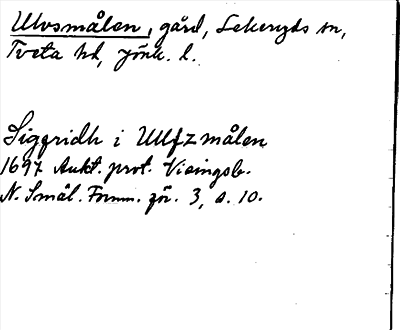 Ulvsmålen, gård, Lekeryds sn,
Tveta hd, Jönk. l.
Siggridh i Ulfzmålen
1697 Aukt. prot. Visingsb.
N. Smål. Fornm. för. 3, s. 10.